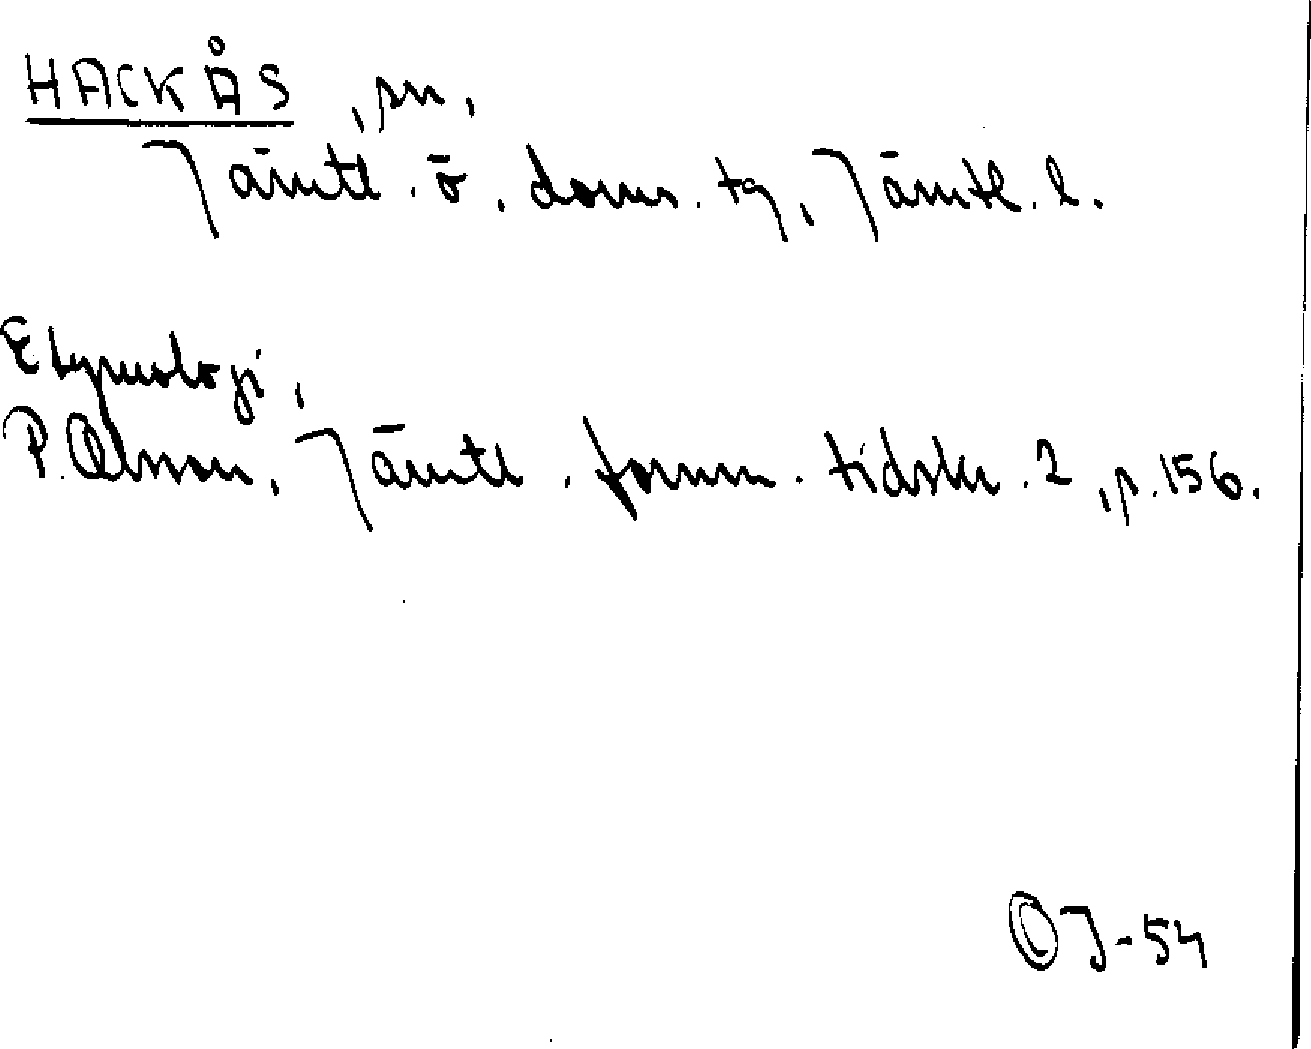 HACKÅS, sn,
Jämtl. ö. doms. tg, Jämtl. l.
Etymologi,
P. Olsson, Jämtl. fornm. tidskr. 2, p. 156.
OJ-54